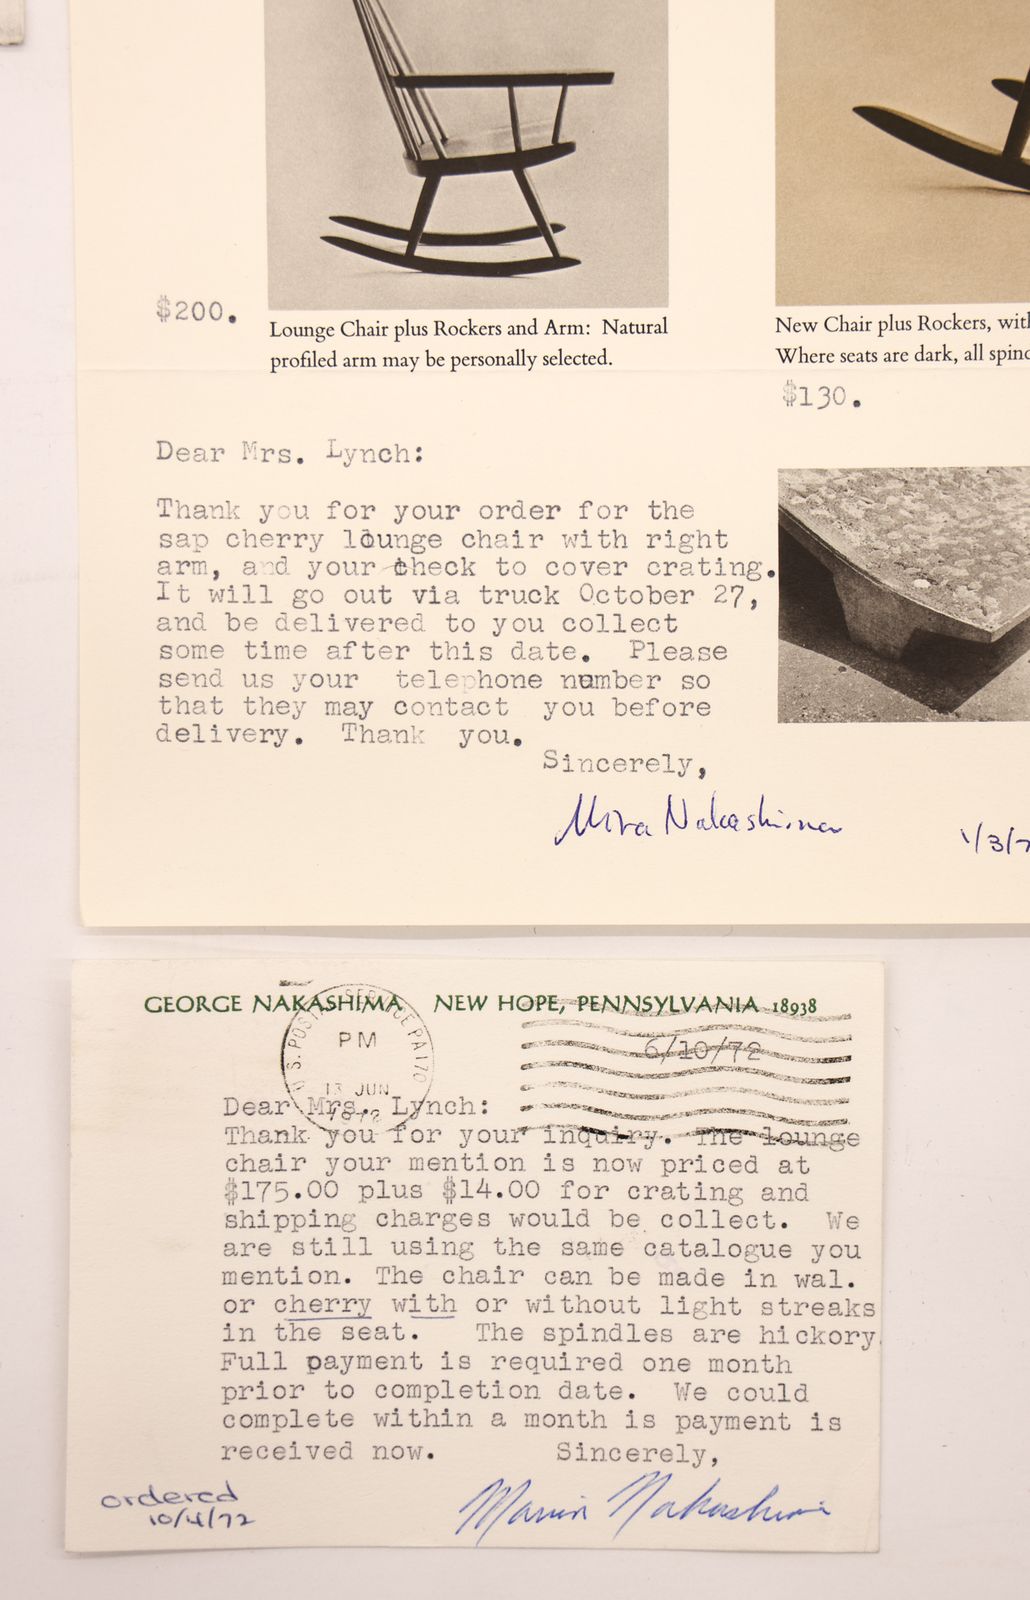 $200.
Lounge Chair plus Rockers and Arm: Natural
profiled arm may be personally selected.
New Chair plus Rockers,
Where seats are dark, all
$130.
Dear Mrs. Lynch:
Thank you for your order for the
sap cherry lounge chair with right
arm, and your check to cover crating.
It will go out via truck October 27,
and be delivered to you collect
some time after this date. Please
send us your telephone number so
that they may contact you before
delivery. Thank you.
Sincerely,
Mira Nakashima
1/3/7
GEORGE NAKASHIMA NEW HOPE, PENNSYLVANIA 18938
U.S. POSTAL SERVICE PA 170
PM
13 JUN
1972
6/10/72
Dear Mrs. Lynch:
Thank you for your inquiry. The lounge
chair your mention is now priced at
$175.00 plus $14.00 for crating and
shipping charges would be collect. We
are still using the same catalogue you
mention. The chair can be made in wal.
or cherry with or without light streaks
in the seat. The spindles are hickory.
Full payment is required one month
prior to completion date. We could
complete within a month is payment is
received now. Sincerely,
Marion Nakashima
ordered
10/4/72